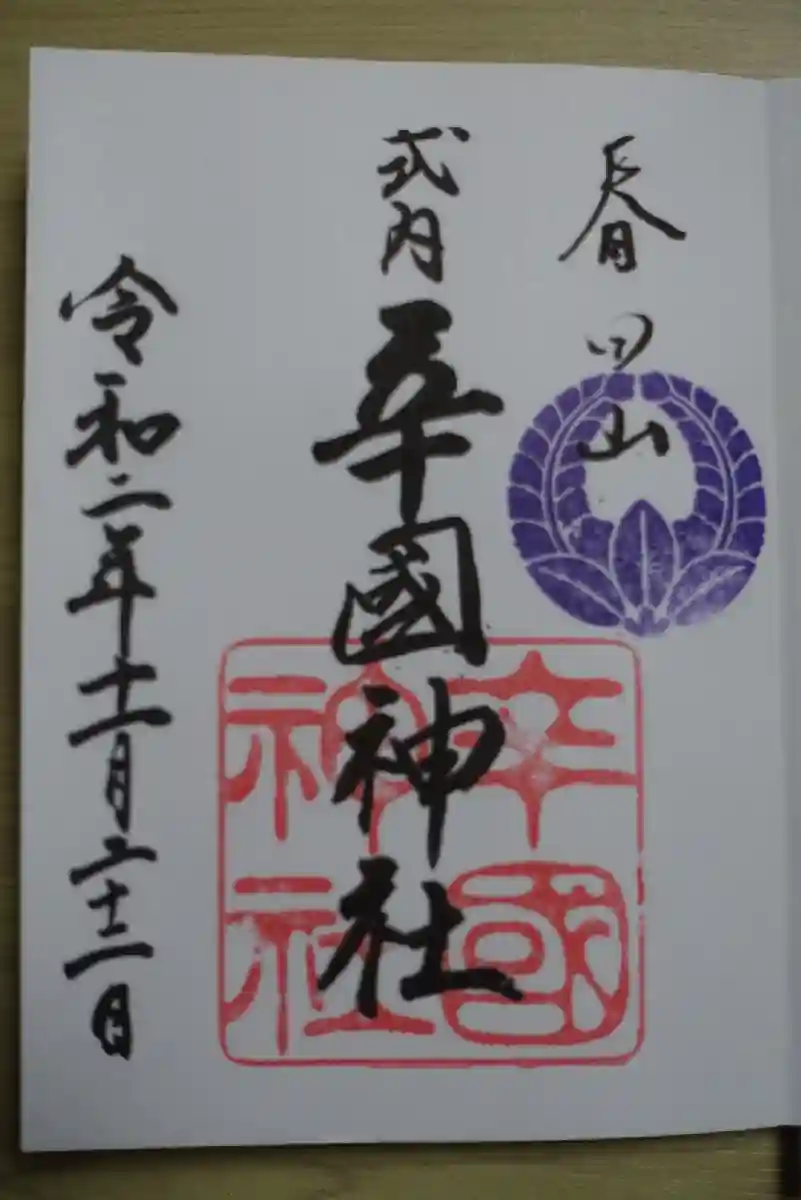 春日山
式内 辛國神社
令和二年十二月二十二日
辛國
神社